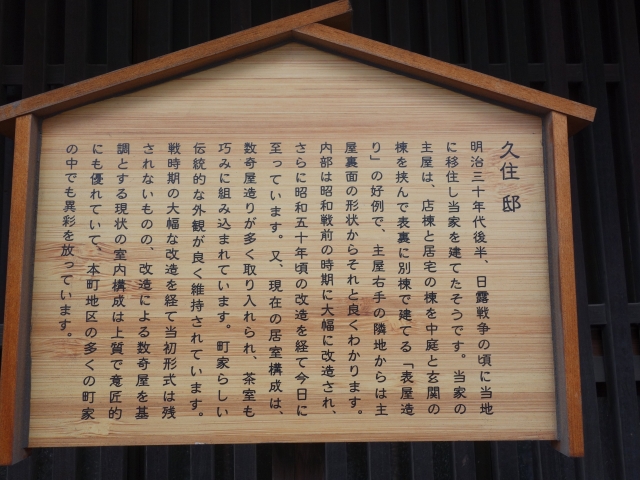 久住 邸
明治三十年代後半、日露戦争の頃に当地
に移住し当家を建てたそうです。当家の
主屋は、店棟と居宅の棟を中庭と玄関の
棟を挟んで表裏に別棟で建てる「表屋造
り」の好例で、主屋右手の隣地からは主
屋裏面の形状からそれと良くわかります。
内部は昭和戦前の時期に大幅に改造され、
さらに昭和五十年頃の改造を経て今日に
至っています。又、現在の居室構成は、
数奇屋造りが多く取り入れられ、茶室も
巧みに組み込まれています。町家らしい
伝統的な外観が良く維持されています。
戦時期の大幅な改造を経て当初形式は残
されないものの、改造による数奇屋を基
調とする現状の室内構成は上質で意匠的
にも優れていて、本町地区の多くの町家
の中でも異彩を放っています。